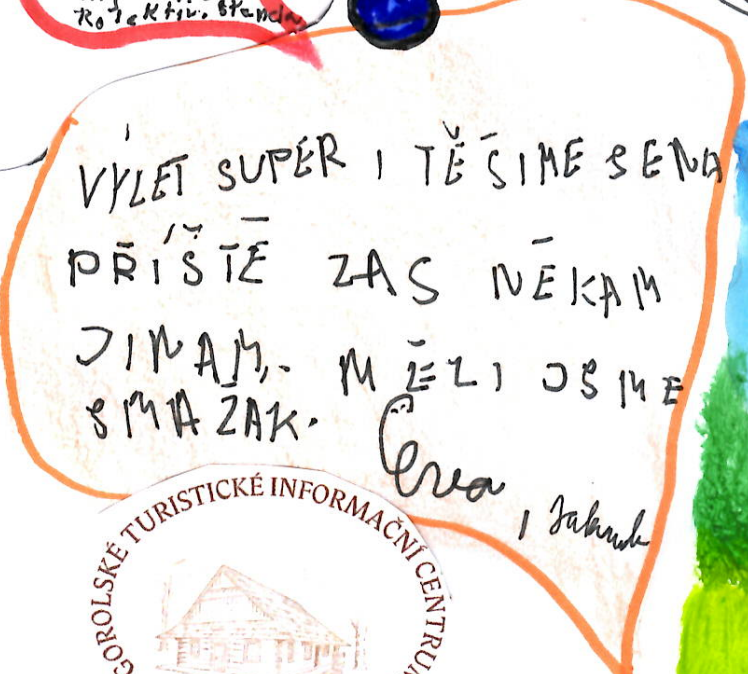 VÝLET SUPER I TĚŠIME SE NA
PŘÍŠTĚ ZAS NĚKAM
JINAM. MĚLI JSME
SMAŽAK.
, Jakub
GOROLSKÉ TURISTICKÉ INFORMAČNÍ CENTRUM